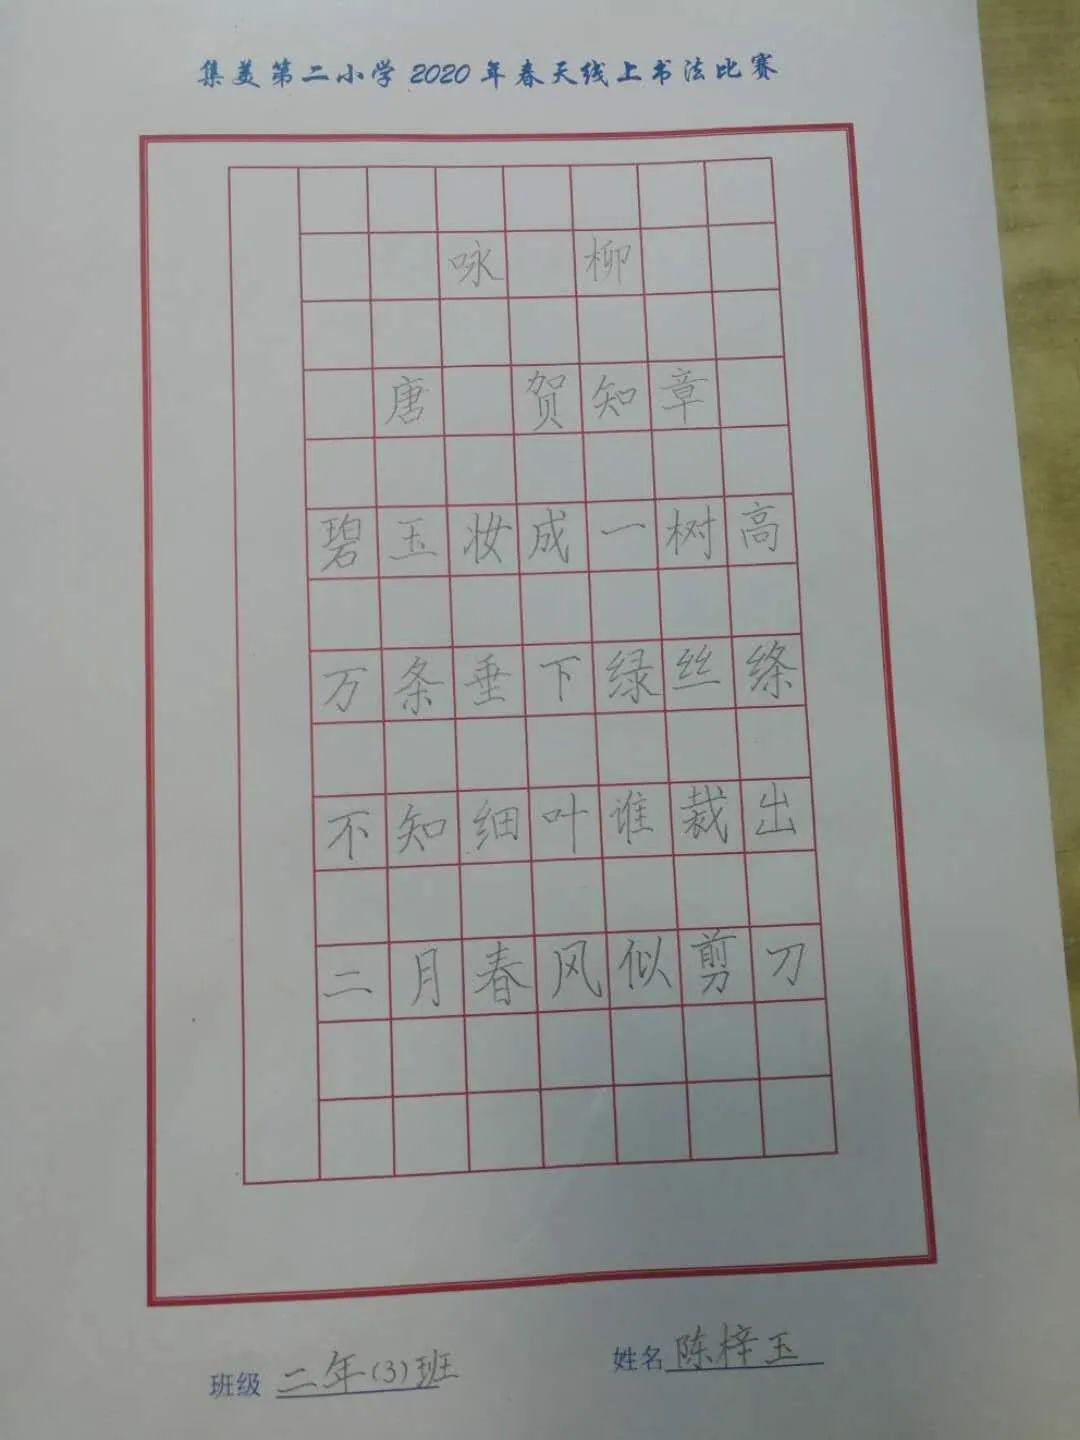 集美第二小学2020年春天线上书法比赛
咏柳
唐 贺知章
碧玉妆成一树高
万条垂下绿丝绦
不知细叶谁裁出
二月春风似剪刀
班级 二年(3)班 姓名 陈梓玉